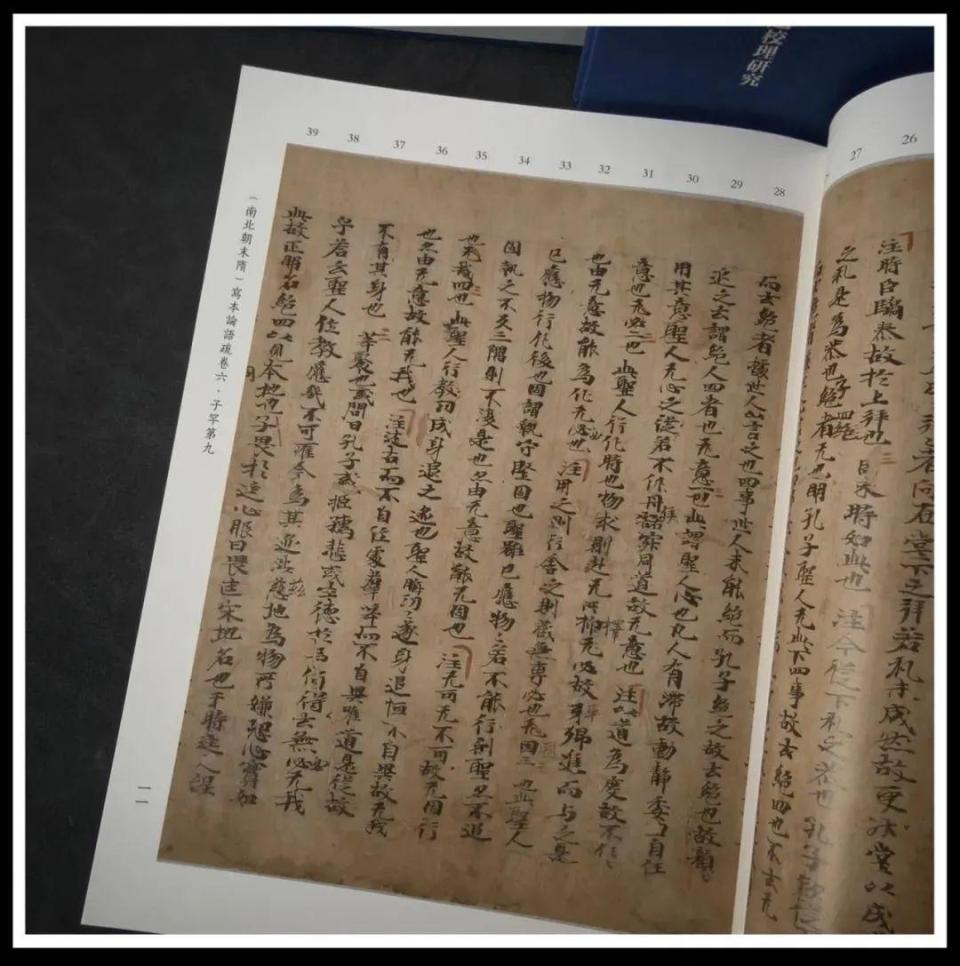 校理研究
39 38 37 36 35 34 33 32 31 30 29 28
27 26
拜者向在堂下之拜若礼未成然故更升堂以成
注時臣驕泰故於上拜也 時如此也 注今從下礼之恭也 孔子欲從
之礼是為恭也子絕四絕者无也明孔子聖人无此下四事故云絕四也不云无
而云絕者據世人以言之也四事世人未能絕而孔子絕之故云絕也故顏
延之云謂絕人四者也无意一也此謂聖人心也凡人有滯故動靜委曲自任
用其意聖人无心泛若不係舟豁寂同道故无意也 注以道為度故不任
意也无必二也此聖人行化時也物求則赴无所抑无必故互鄉進而与之是
也由无意故能為化无必也 注用之則行舍之則藏無專必也无固三也此聖人
已應物行化後也固謂執守堅固也聖雖已應物之若不能行則聖亦不追
固執之不反三隅則不復是也亦由无意故能无固也 注无可无不可故无固行
也无我四也此聖人行教功成身退之迹也聖人晦迹逐身退恒不自異故无我
也亦由无意故能无我也 注述古而不自作處群萃而不自異唯道是從故
不有其身也 萃聚也或問曰孔子或拒孺悲或云生德於予何得云無必无我
乎荅云聖人作教應机不可准今為其迹涉茲地為物所嫌恐心實如
此故正明絕四以見本地也子畏於匡心服曰畏匡宋地名也于時匡人誤
（南北朝末隋）寫本論語疏卷六·子罕第九
一一